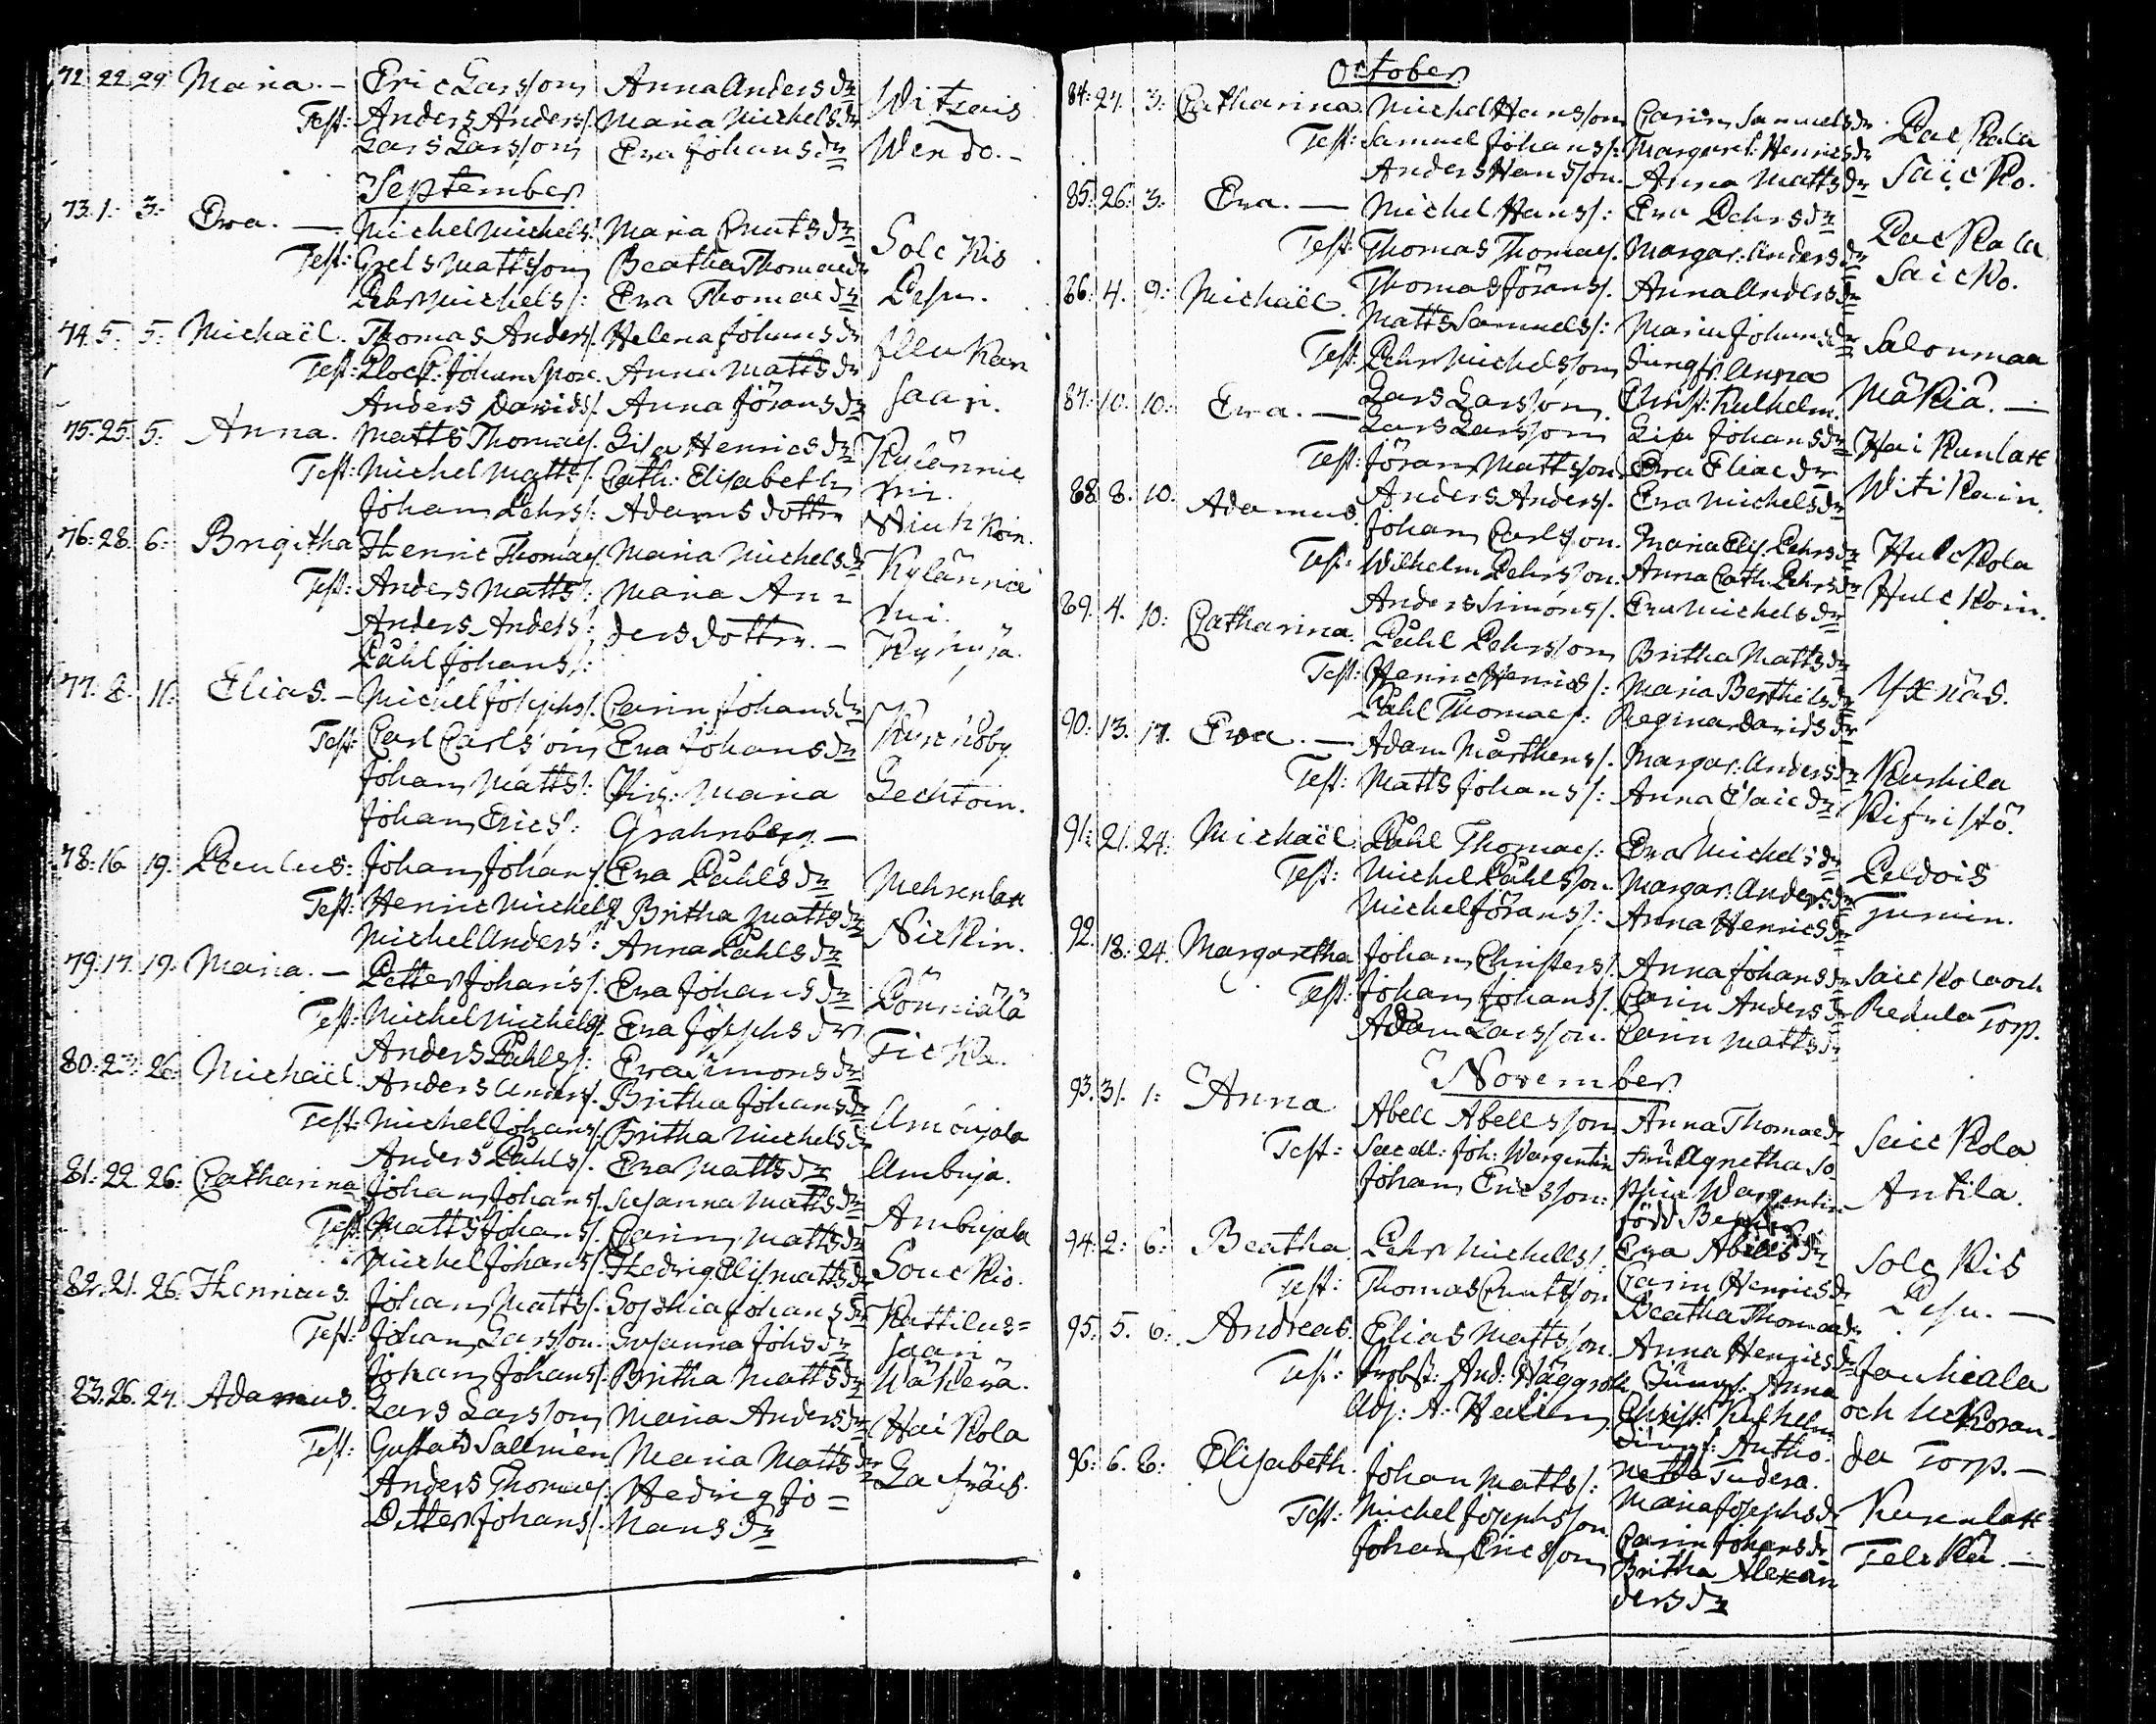 72. 22. 29. Maria. – Eric Larsson Anna Andersdr Witzais
Test: Anders Anders/. Maria Michelsdr
Lars Larsson Eva Johansdr Wendo. –
September
73. 1. 3. Eva. – Michel Michels/: Maria Cnutsdr Solckis
Test: Grels Mattsson Beatha Thomaedr
Pehr Michels/: Eva Thomaedr Pesu.
74. 5. 5. Michaël. Thomas Anders/. Helena Johansdr
Test: Klock: Johan Anna Mattsdr
Anders Davids/. Anna Jöransdr saari.
75. 25. 5. Anna. Matts Thomas/. Lisa Henricsdr
Test: Michel Matts/. Cath: Elisabeth
Johan Pehrs/: Adamsdotter
76. 28. 6. Brigitha Henric Thomas/. Maria Michelsdr
Test: Anders Matts/: Maria An=
Anders Anders/: dersdotter. –
Påhl Johans/:
77. 8. 11. Elias. – Michel Josephs/. Carin Johansdr
Test: Carl Carlsson Eva Johansdr
Johan Matts/: Pig: Maria Lechtoin.
Johan Erics/: Grahnberg. –
78. 16. 19. Paulus: Johan Johans/. Eva Påhlsdr
Test: Henric Michels/. Britha Mattsdr
Michel Anders/: Anna Påhlsdr Nickin.
79. 17. 19. Maria. – Petter Johans/. Eva Johansdr Pönniälä
Test: Michel Michels/. Eva Josephsdr
Anders Påhls/: Eva Simonsdr Ticka.
80. 23. 26. Michaël. Anders Anders/. Britha Johansdr
Test: Michel Johans/. Britha Michelsdr
Anders Påhls/. Eva Mattsdr Ambuja.
81. 22. 26. Catharina Johan Johans/. Susanna Mattsdr
Test: Matts Johans/. Carin Mattsdr Ambujala
Michel Johans/. Hedvig Elis: Mattsdr Souckio.
82. 21. 26. Henricus. Johan Matts/. Sophia Johansdr Kattilus=
Test: Johan Larsson. Susanna Johsdr saari
Johan Johans/. Britha Mattsdr Wäkevä.
83. 26. 27. Adamus. Lars Larsson Maria Andersdr Haikola
Test: Gustav Sallmén Maria Mattsdr
Anders Thomas/. Hedvig Jo=
Petter Johans/. hansdr
October
84. 27. 3. Catharina. Michel Hansson Carin Samuelsdr Packala
Test: Samuel Johans/. Margaret: Henricsdr
Anders Hansson. Anna Mattsdr Saicko.
85. 26. 3. Eva. – Michel Hans/: Eva Pehrsdr Packala
Test: Thomas Thomas/. Margar: Andersdr
Thomas Jörans/. Anna Andersdr Saicko.
86. 4. 9. Michaël. Matts Samuels/: Maria Johansdr Salonmaa
Test: Pehr Michelsson Jungf. Anna
Lars Larsson. Christ: Kulhelm. Mäkiä. –
87. 10. 10. Eva. – Lars Larsson Lisa Johansdr
Test: Jöran Mattsson. Eva Eliaedr
Anders Anders/. Eva Michelsdr Witikain.
88. 8. 10. Adamus. Johan Carlsson. Maria Elis. Pehrsdr Hulckola
Test: Wilhelm Pehrsson. Anna Cath. Pehrsdr
Anders Simons/. Eva Michelsdr Hulckoin.
89. 4. 10. Catharina. Påhl Pehrsson Britha Mattsdr
Test: Henric Henrics/: Maria Berthilsdr Yxnäs.
Påhl Thomas/: Regina Davidsdr
90. 13. 17. Eva. – Adam Mårthens/. Margar: Andersdr
Test: Matts Johans/: Anna Esaiedr
91. 21. 24. Michaël. Påhl Thomas/: Eva Michelsdr Peldois
Test: Michel Påhlsson. Margar. Andersdr
Michel Jörans/: Anna Henricsdr
92. 18. 24. Margaretha Johan Christers/. Anna Johansdr Saickola och
Test: Johan Johans/. Carin Andersdr Torp.
Adam Larsson. Carin Mattsdr
November
93. 31. 1. Anna Abell Abellsson Anna Thomaedr Saickola
Test: Sacell: Joh: Wargentin Fru Agnetha So
Johan Ericsson: phia Wargentin Antila.
född
94. 2. 6. Beatha Pehr Michells/. Eva Abellsdr Solckis
Test: Thomas Cnutsson Carin Henricsdr Pesu. –
Beatha Thomaedr
95. 5. 6. Andreas. Elias Mattsson. Anna Henricsdr Jouhiala
Test: Probst: And: Häggroth Jungf: Anna
Adj: A: Christ: Kulhelm och
Jungf: Antho. da Torp. –
netta Tudera.
96. 6. 8. Elisabeth. Johan Matts/: Maria Josephsdr
Test: Michel Josephsson Carin Johansdr
Johan Ericsson Britha Alexan
dersdr